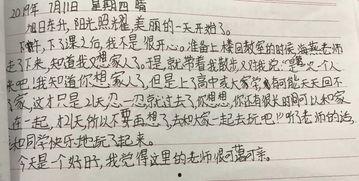 2019年 7月11日 星期四 晴
旭日东升,阳光照耀,美丽的一天开始了。
下午,下了课之后,我不是很开心。准备上楼回教室的时候,海燕老师
走了下来,知道我又想家了。于是就带着我散步又对我说:"又一个人
来吧!我知道你想家人了,但是上了高中或大家学,有可能天天回不
了家,这才只是21天,忍一忍就过去了,你想想,你还有很长时间可以和家
在一起,就21天,所以不要再想了,去和大家一起去玩吧!"听了老师的话,
和同学快乐地玩了起来。
今天是一个好日子,我觉得这里的老师很可蔼可亲。